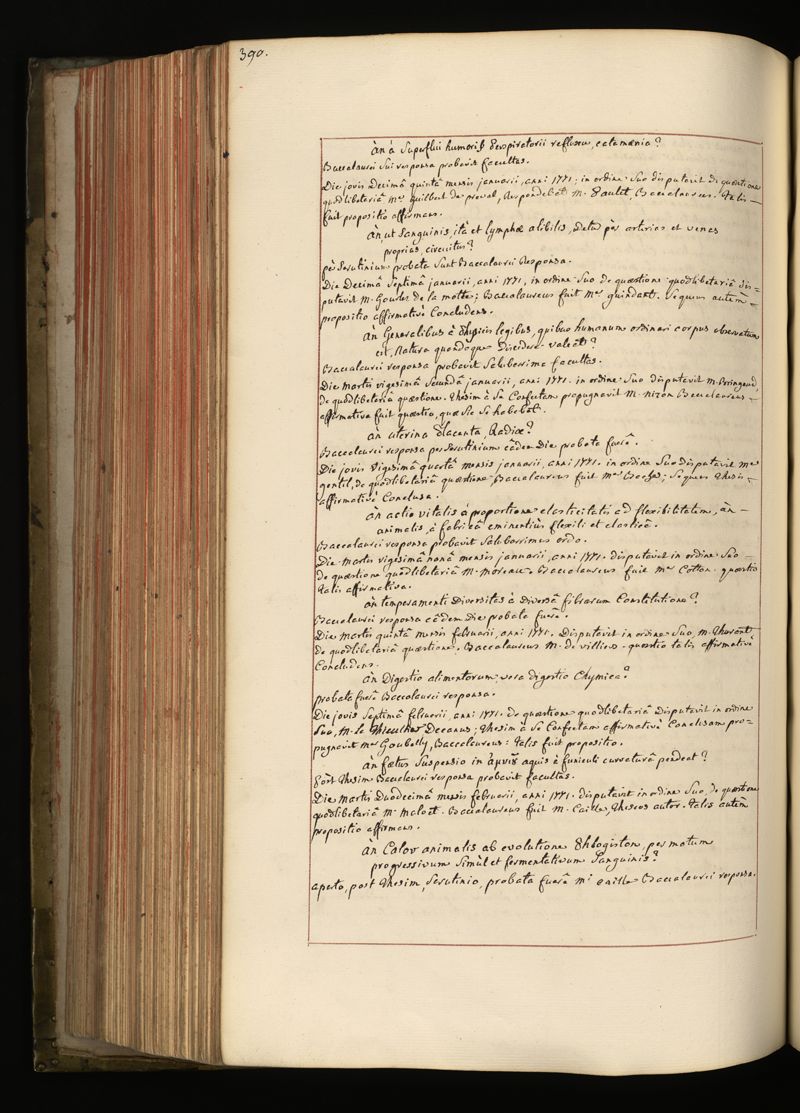 390.
àn à superflui humoris perspiratorii refluxu, catamænia?
Baccalaurei sui responsa probavit facultas.
Die jovis Decimâ quintâ mensis januarii, anni 1771, in ordine suo disputavit de quæstione
quodlibetariâ Mr. guilbert de preval, Respondebat M. paulet, Baccalaureus. Talis
fuit propositio affirmans.
àn, ut Sanguinis, ità et lymphæ alibilis, Detur per arterias et venas
proprias, circuitus?
per Scrutinium probata sunt Baccalaurei Responsa.
Die Decimâ Septimâ januarii, anni 1771, in ordine suo de quæstione quodlibetariâ dis=
putavit M. de la motte; Baccalaureus fuit Mr. guindant. Sequens autem
propositio affirmativè Concludens.
àn Generalibus à physicis legibus, quibus humanum ordinari corpus observatum
est, Natura quandoque Discedere valeat?
Baccalaurei responsa probavit Saluberrima facultas.
Die Martis vigesimâ Secundâ januarii, anni 1771. in ordine suo disputavit M. Poringeud,
de quodlibetaria quæstione. thesim à se Confectam propugnavit M. nizon Baccalaureus
affirmativa fuit quæstio, quæ sic se habebat.
àn uterina placenta, Radix?
Baccalaurei responsa per Scrutinium eâdem Die probata fuere.
Die jovis vigesimâ quartâ mensis januarii, anni 1771. in ordine suo disputavit Mr.
gentil, de quodlibetariâ quæstione. Baccalaureus fuit Mr. Bacher; sequens thesis
affirmativè Conclusa.
àn actio vitalis à proportione elasticitatis ad flexibilitatem, àn
animalis, à fabricâ eminentiùs flexili et elasticâ.
Baccalaurei responsa probavit Saluberrimus ordo.
Die Martis vigesimâ nonâ mensis januarii, anni 1771. disputavit in ordine suo
de quæstione quodlibetariâ M. Moreau. Baccalaureus fuit Mr. Cotton. quæstio
talis affirmativa.
àn temperamenti Diversitas à Diversâ fibrarum Constitutione?
Baccalaurei responsa eâdem die probata fuere.
Die Martis quintâ mensis februarii, anni 1771. Disputavit in ordine suo, M. thurant
de quodlibetariâ quæstione. Baccalaureus M. de villiers. quæstio talis affirmativè
Concludens.
àn Digestio alimentorum vera digestio Chymica?
probata fuere Baccalaurei responsa.
Die jovis Septimâ februarii, anni 1771. de quæstione quodlibetariâ Disputavit in ordine
suo, M. Le Thieullier Decanus; thesim à se Confectam affirmativè Conclusam pro=
pugnavit Mr. Goubelly, Baccalaureus: talis fuit propositio.
àn fœtus Suspensio in amnii aquis à funiculi curvaturâ pendeat?
post thesim Baccalaurei responsa probavit facultas.
Die Martis Duodecimâ mensis februarii, anni 1771. disputavit in ordine suo, de quæstione
quodlibetariâ Mr. Maloet. Baccalaureus fuit M. Caille, theseos autor. talis autem
propositio affirmans.
àn Calor animalis ab evolutione phlogiston, per motum
progressivum simul et fermentativum Sanguinis?
aperto, post thesim, Scrutinio, probata fuere Mi. Caille Baccalaurei responsa.